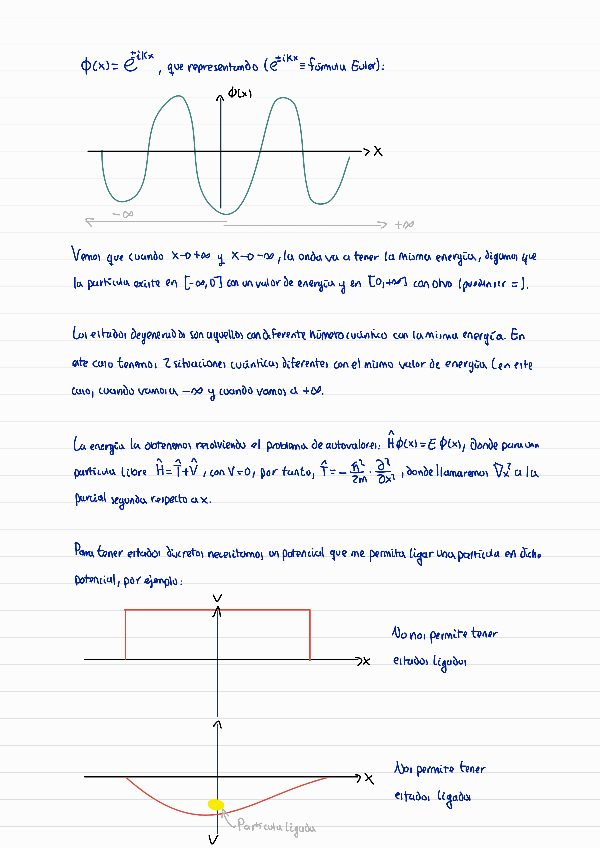 ϕ(x) = e^{±iKx}, que representando (e^{±iKx} ≡ fórmula Euler):
ϕ(x)
x
-∞
+∞
Vemos que cuando x→+∞ y x→-∞, la onda va a tener la misma energía, digamos que
la partícula existe en [-∞,0] con un valor de energía y en [0,+∞] con otro (pueden ser =).
Los estados degenerados son aquellos con diferente número cuántico con la misma energía. En
este caso tenemos 2 situaciones cuánticas diferentes con el mismo valor de energía (en este
caso, cuando vamos a -∞ y cuando vamos a +∞.
La energía la obtenemos resolviendo el problema de autovalores: Ĥϕ(x) = Eϕ(x), donde para una
partícula libre Ĥ = T̂ + V̂, con V=0, por tanto, T̂ = -ħ²/2m · ∂²/∂x², donde llamaremos ∇x² a la
parcial segunda respecto a x.
Para tener estados discretos necesitamos un potencial que me permita ligar una partícula en dicho
potencial, por ejemplo:
V
No nos permite tener
x
estados ligados
Nos permite tener
x
estados ligados
Partícula ligada
V